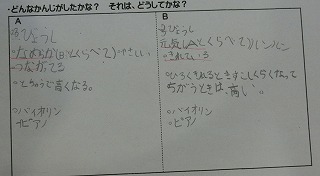 ・どんなかんじがしたかな？ それは、どうしてかな？
A
3びょうし
○なめらか(Bとくらべて)やさしい
○つながてる
○とちゅうで高くなる。
○バイオリン
ピアノ
B
3びょうし
元気(Aとくらべて)ルンルン
○きれている
○ひろくきねるときすこしくらくなって
ちがうときは高い。
○バイオリン
○ピアノ